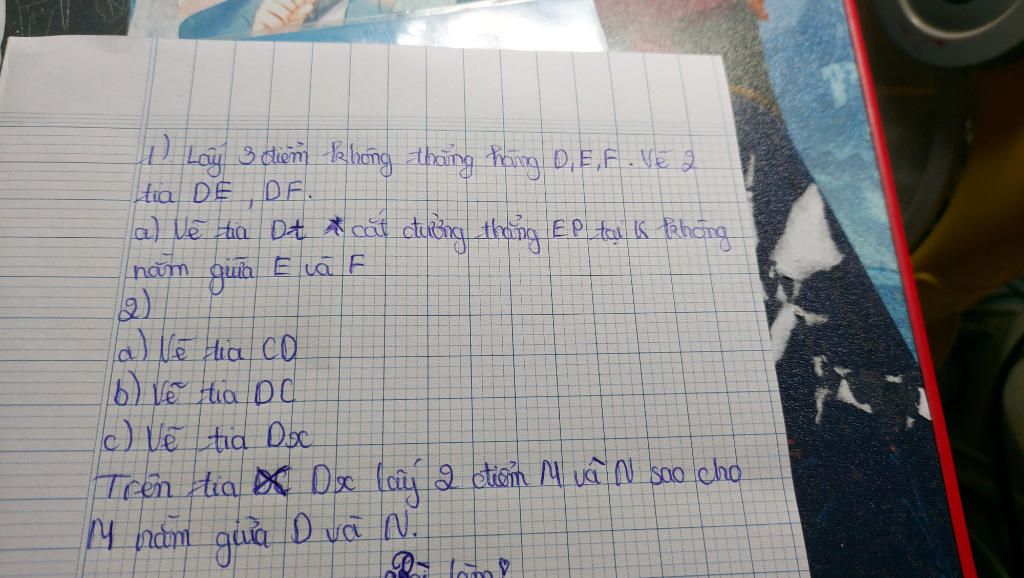 1) Lấy 3 điểm không thẳng hàng D, E, F. Vẽ 2
tia DE, DF.
a) Vẽ tia Dt cắt đường thẳng EP tại K không
nằm giữa E và F
2)
a) Vẽ tia CD
b) Vẽ tia DC
c) Vẽ tia Dx
Trên tia Dx lấy 2 điểm M và N sao cho
M nằm giữa D và N.